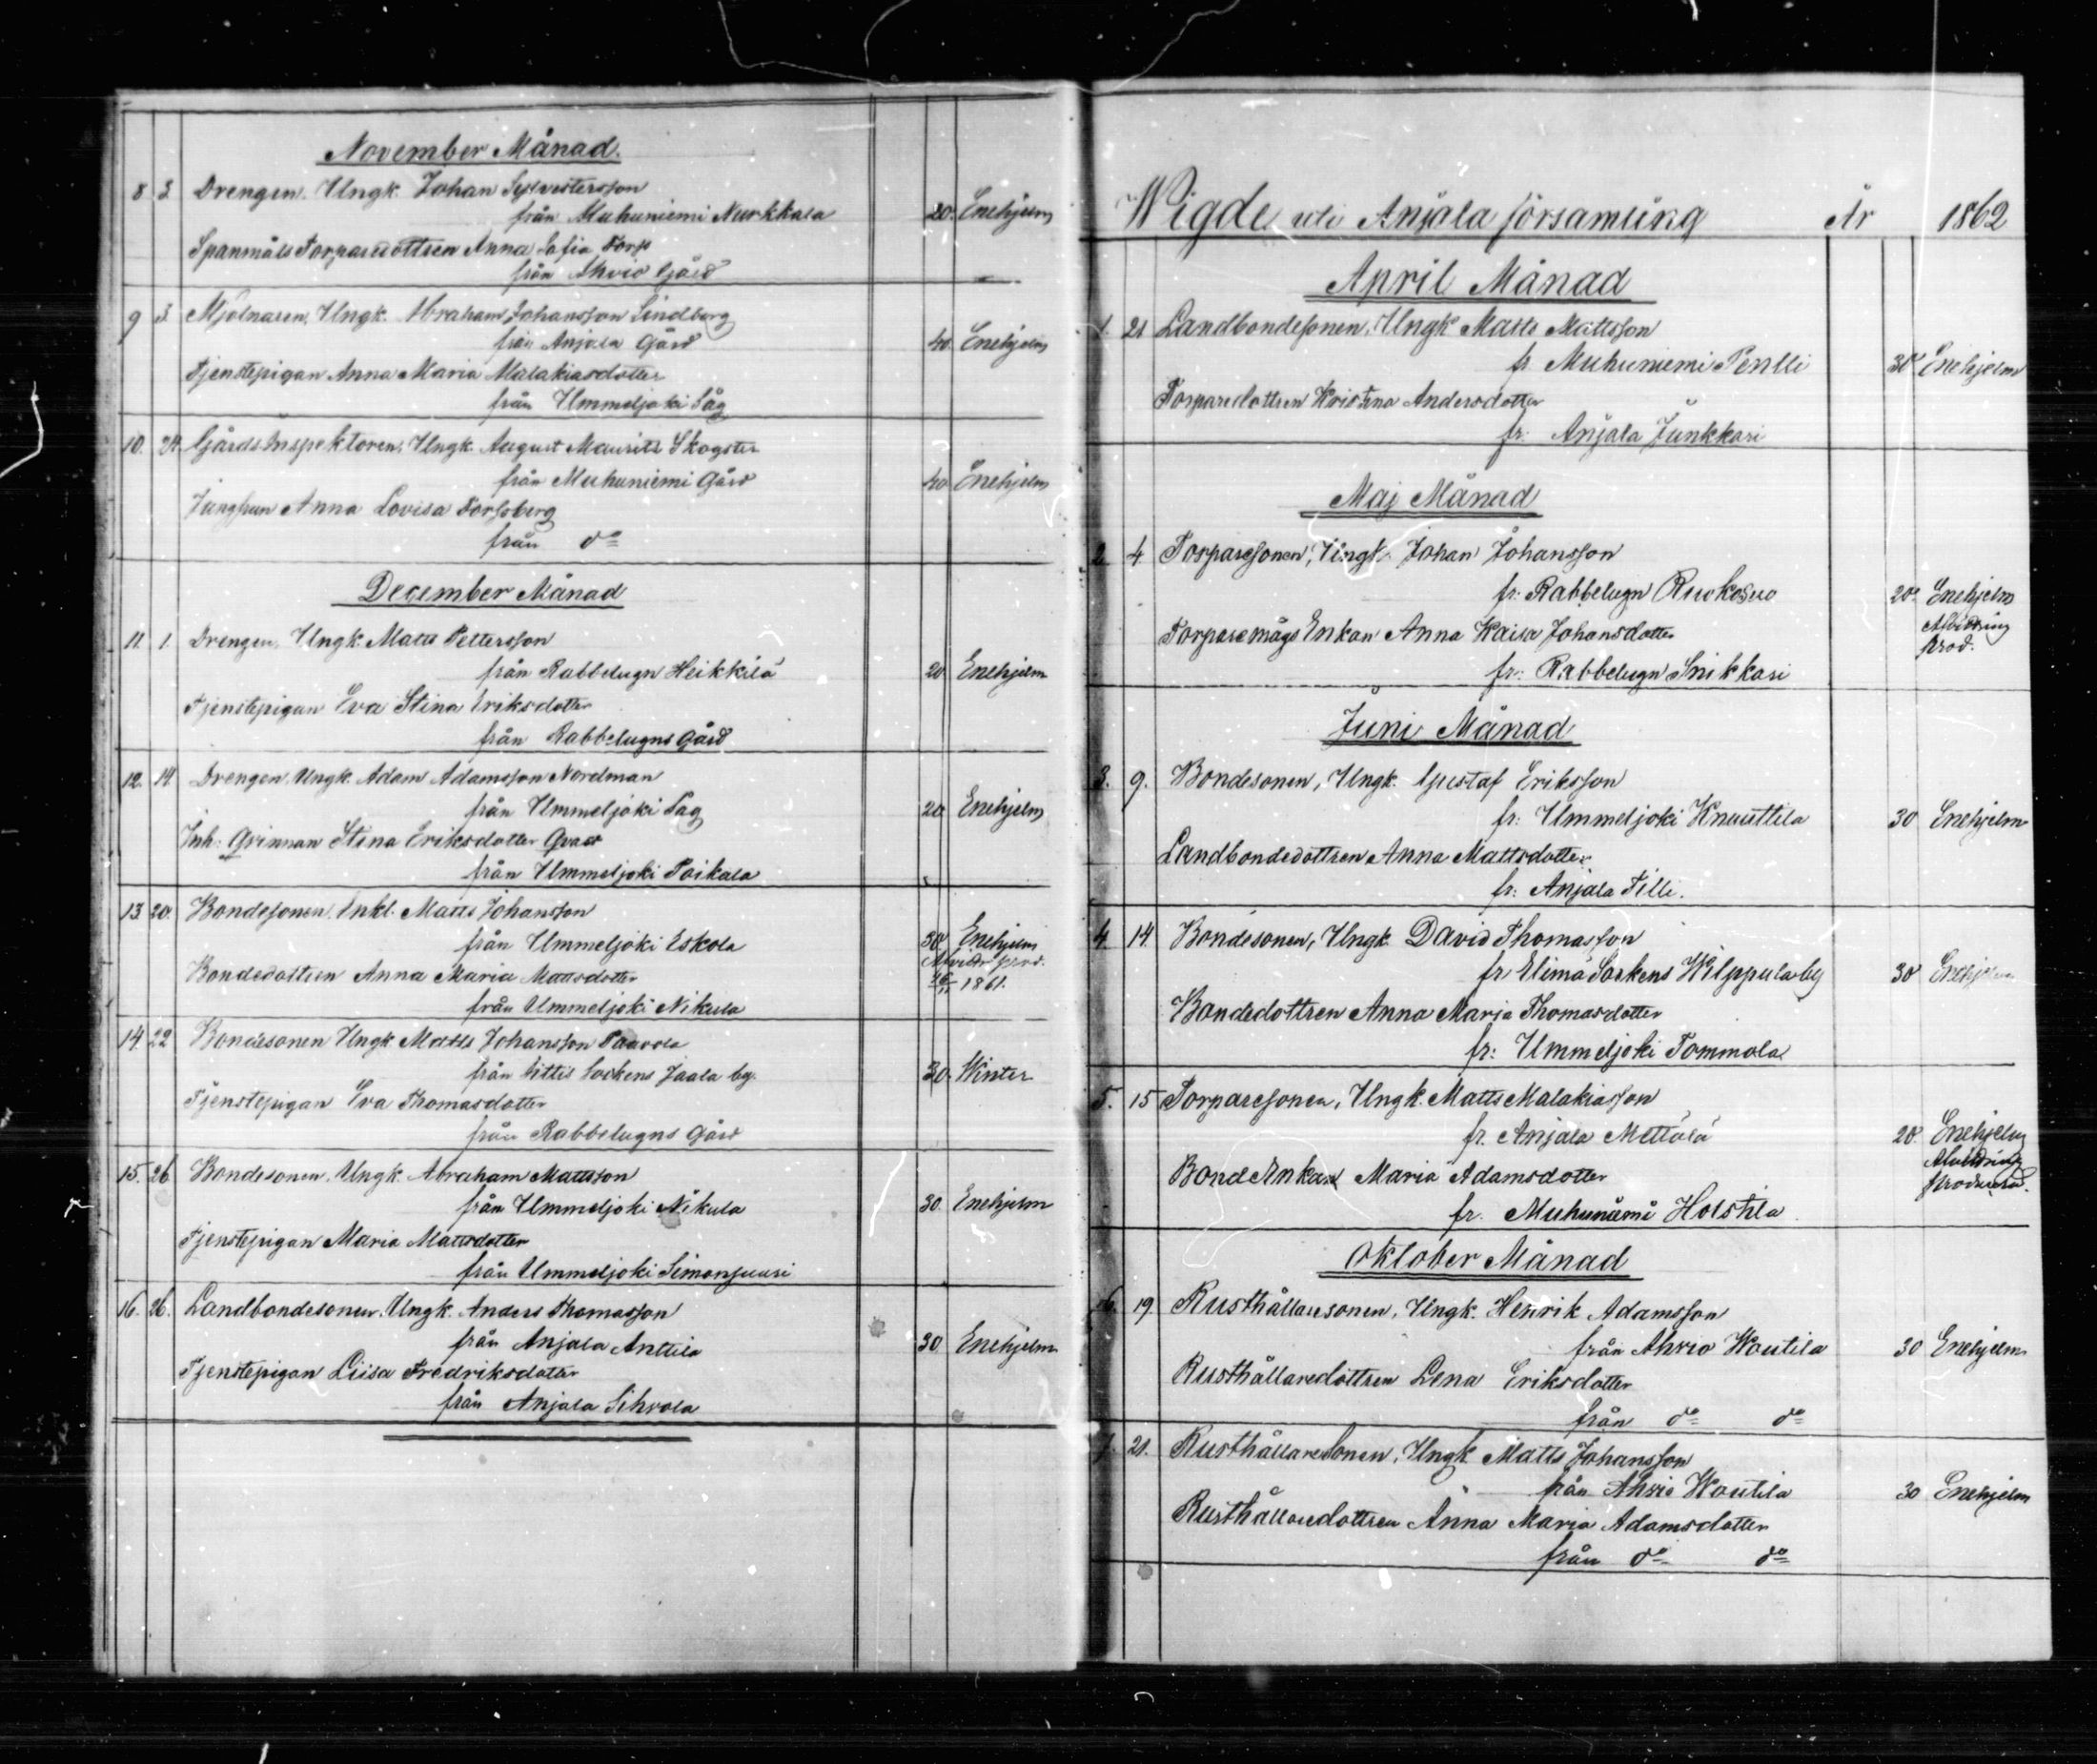 November Månad.
8 3 Drengen. Ungk. Johan Sylvestersson
från Muhuniemi Nurkkala 20 Enehjelm
Spanmåls Torparedottren Anna Sofia Torp
från Ahvio Gård
9 3. Mjölnaren, Ungk. Abraham Johansson Lindberg
från Anjala Gård 40 Enehjelm
Tjenstepigan Anna Maria Malakiasdotter
från Ummeljoki Såg
10. 24. Gårds Inspektoren, Ungk. August Maurits Skogster
från Muhuniemi Gård 40 Enehjelm
Jungfrun Anna Lovisa Forssberg
från do
December Månad
11. 1. Drengen, Ungk. Matts Pettersson
från Rabbelugn Heikkilä 20 Enehjelm
Tjenstepigan Eva Stina Eriksdotter
från Rabbelugns Gård
12. 14 Drengen, Ungk. Adam Adamsson Nordman
från Ummeljoki Såg 20 Enehjelm
Inh: Qvinnan Stina Eriksdotter
från Ummeljoki Poikala
13 20. Bondesonen, Enkl. Matts Johansson
från Ummeljoki Eskola 30 Enehjelm
Bondedottren Anna Maria Mattsdotter prod.
från Ummeljoki Nikula 1861.
14. 22 Bondesonen Ungk Matts Johansson Paavola
från Iittis Sockens Jaala by. 30 Winter
Tjenstepigan Eva Thomasdotter
från Rabbelugns Gård
15. 26 Bondesonen, Ungk. Abraham Mattsson
från Ummeljoki Nikula 30 Enehjelm
Tjenstepigan Maria Mattsdotter
från Ummeljoki Simonsuuri
16. 26. Landbondesonen, Ungk. Anders Thomasson
från Anjala Anttila 30 Enehjelm
Tjenstepigan Liisa Fredriksdotter
från Anjala Sihvola
Wigde uti Anjala församling År 1862
April Månad
1. 21 Landbondesonen, Ungk Matts Mattsson
fr Muhuniemi Pentti 30 Enehjelm
Torparedottren Kristina Andersdotter
fr: Anjala Junkkari
Maj Månad
2 4 Torparesonen, Ungk. Johan Johansson
fr: Rabbelugn Ruokosuo 20 Enehjelm
Torparemågs Enkan Anna Kaisa Johansdotter Afvittring prod.
fr: Rabbelugn Snikkari
Juni Månad
3. 9. Bondesonen, Ungk. Gustaf Eriksson
fr: Ummeljoki Knuuttila 30 Enehjelm
Landbondedottren Anna Mattsdotter
fr: Anjala Tilli.
4. 14. Bondesonen, Ungk. David Thomasson
fr Elimä Sockens Wilppula by 30 Enehjelm
Bondedottren Anna Maria Thomasdotter
fr: Ummeljoki Tommola
5. 15 Torparesonen, Ungk. Matts Malakiasson
fr. Anjala Mettälä 20 Enehjelm
BondEnkan Maria Adamsdotter Afvittring
fr. Muhuniemi Holstila
Oktober Månad
6. 19. Rusthållaresonen, Ungk. Henrik Adamsson
från Ahvio Woutila 30 Enehjelm
Rusthållaredottren Lena Eriksdotter
från do do
7. 21. Rusthållaresonen, Ungk Matts Johansson
från Ahvio Woutila 30 Enehjelm
Rusthållaredottren Anna Maria Adamsdotter
från do do